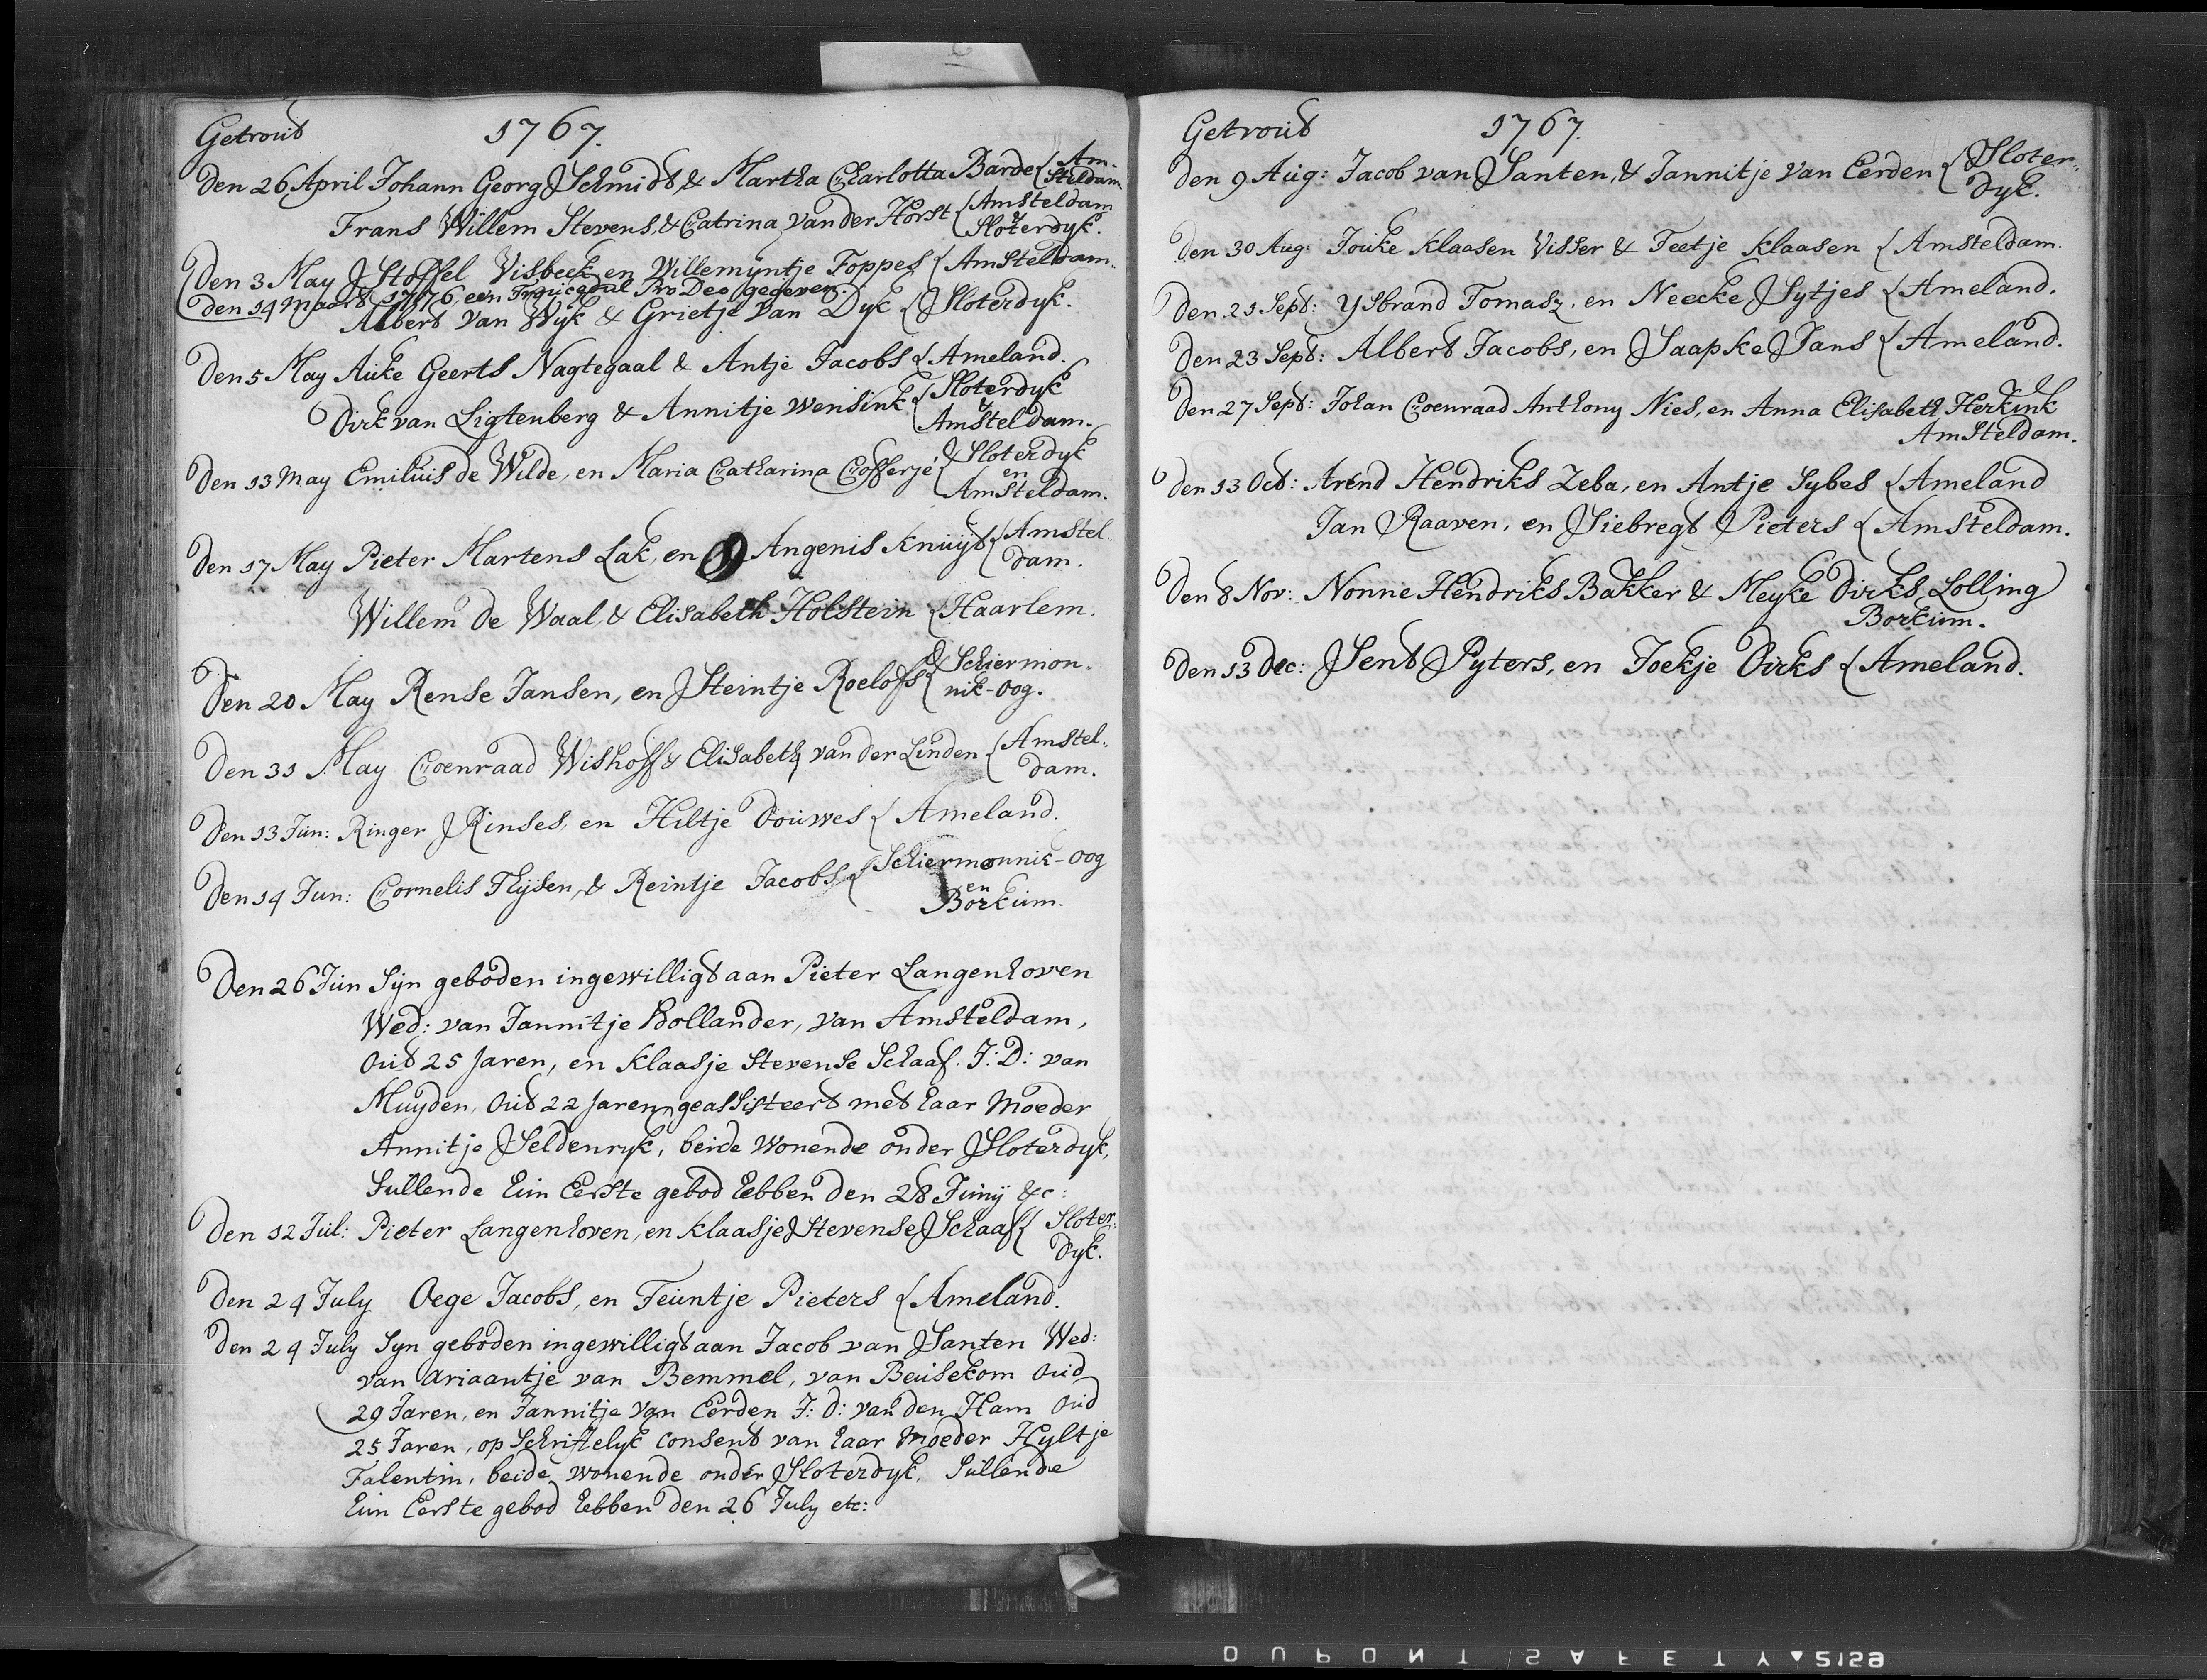 Getrout 1767.
Den 26 April Johann Georg Schmidt, & Martha Charlotta Barde { Am-
steldam.
Frans Willem Stevens, & Catrina van der Horst { Amsteldam
&
Sloterdyk.
Den 3 May Stoffel Visbeek en Willemyntje Foppes { Amsteldam.
den 14 Maart 1776 een Trouicedul Pro Deo gegeven.
Albert van Wyk & Grietje van Dyk { Sloterdyk.
Den 5 May Auke Geerts Nagtegaal & Antje Jacobs { Ameland.
Dirk van Ligtenberg & Annitje Wensink { Sloterdyk
&
Amsteldam.
Den 13 May Emilius de Wilde, en Maria Catharina Cofferjé { Sloterdyk
en
Amsteldam.
Den 17 May Pieter Martens Lak, en Angenis Knuyt { Amstel-
dam.
Willem de Waal, & Elisabeth Holstein { Haarlem.
Den 20 May Rense Jansen, en Steintje Roelofs { Schiermon-
nik-oog.
Den 31 May Coenraad Wishoff & Elisabeth van der Linden { Amstel-
dam.
Den 13 Jun: Ringer Rinses, en Hiltje Douwes { Ameland.
Den 14 Jun: Cornelis Thijsen, & Reintje Jacobs { Schiermonnik-oog
en
Borkum.
Den 26 Jun Syn geboden ingewilligt aan Pieter Langenhoven
Wed: van Jannitje Bollander, van Amsteldam,
Out 25 Jaren, en Klaasje Stevense Schaaf. J: D: van
Muyden, Out 22 Jaren, geassisteert met haar Moeder
Annitje Seldenryk, beide wonende onder Sloterdyk,
Sullende hun Eerste gebod hebben den 28 Juny &c:
Den 12 Jul: Pieter Langenhoven, en Klaasje Stevense Schaaf { Sloter-
dyk.
Den 24 July Oege Jacobs, en Teuntje Pieters { Ameland.
Den 24 July Syn geboden ingewilligt aan Jacob van Santen Wed:
van Ariaantje van Bemmel, van Beusekom Oud
29 Jaren, en Jannitje van Eerden J: D: van den Ham Oud
25 Jaren, op Schriftelyk Consent van haar Moeder Hyltje
Falentin, beide wonende onder Sloterdyk, Sullende
hun Eerste gebod hebben den 26 July etc:
Getrout 1767.
Den 9 Aug: Jacob van Santen, & Jannitje van Eerden { Sloter-
dyk.
Den 30 Aug: Jouke Klaasen Visser & Teetje Klaasen { Amsteldam.
Den 21 Sept: Ysbrand Tomasz, en Neecke Sytjes { Ameland.
Den 23 Sept: Albert Jacobs, en Saapke Jans { Ameland.
Den 27 Sept: Johan Coenraad Anthony Nies, en Anna Elisabeth Herkink
Amsteldam.
Den 13 Oct: Arend Hendriks Zeba, en Antje Sybes { Ameland
Jan Raaven, en Siebregt Pieters { Amsteldam.
Den 8 Nov: Nonne Hendriks Bakker & Meyke Dirks Lolling
Borkum.
Den 13 Dec: Sent Pyters, en Joekje Dirks { Ameland.
DUPONT SAFETY 5159